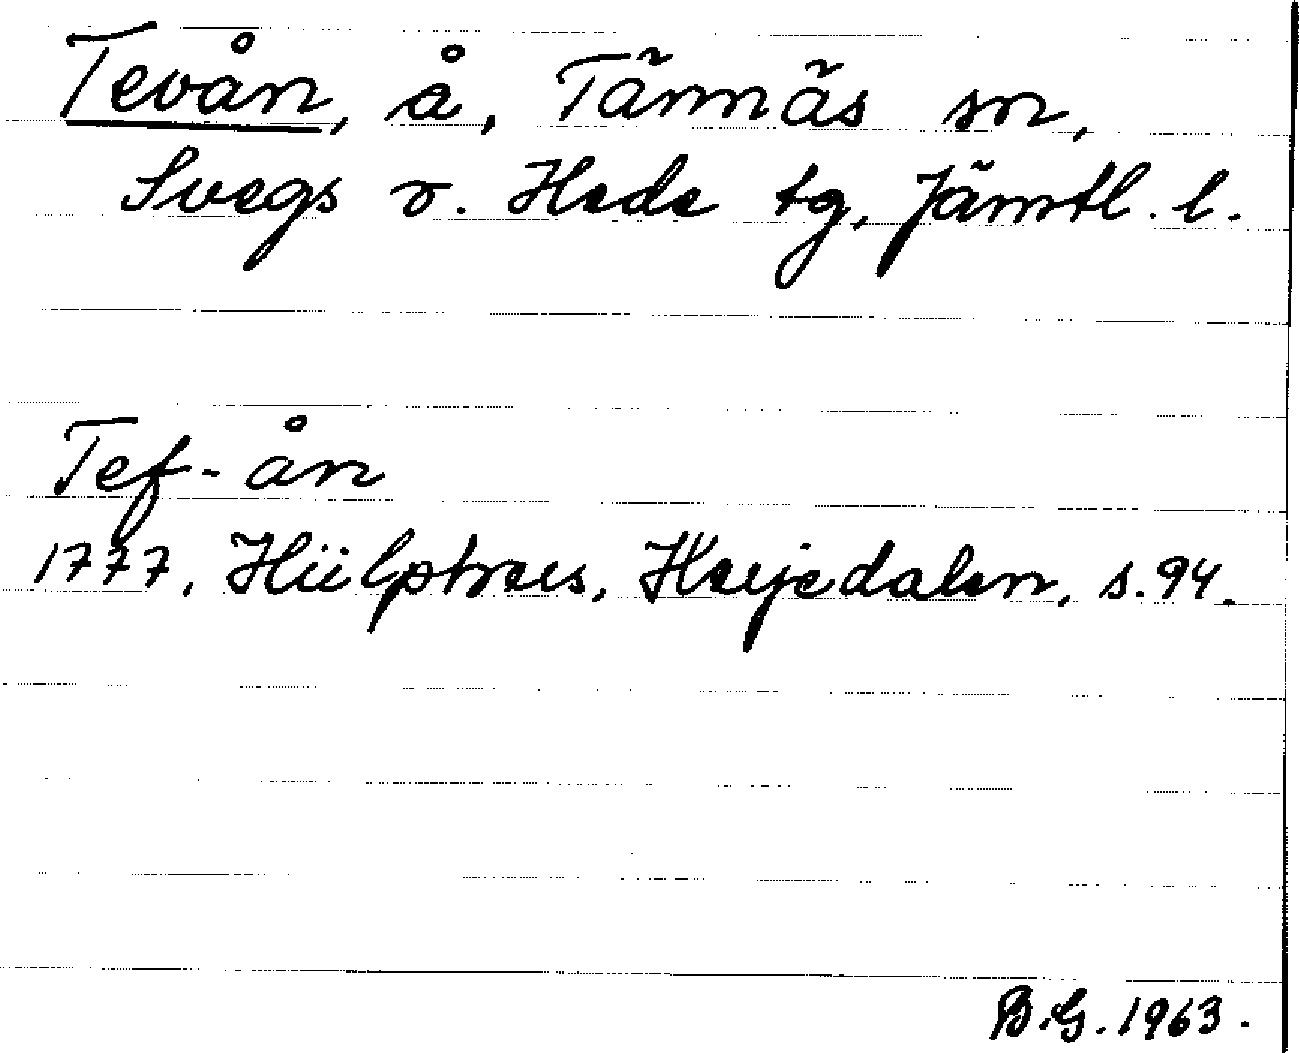 Tevån, å, Tännäs sn,
Svegs o. Hede tg, Jämtl. l.
Tef-ån
1777, Hülphers, Herjedalen, s. 94.
B.G. 1963.